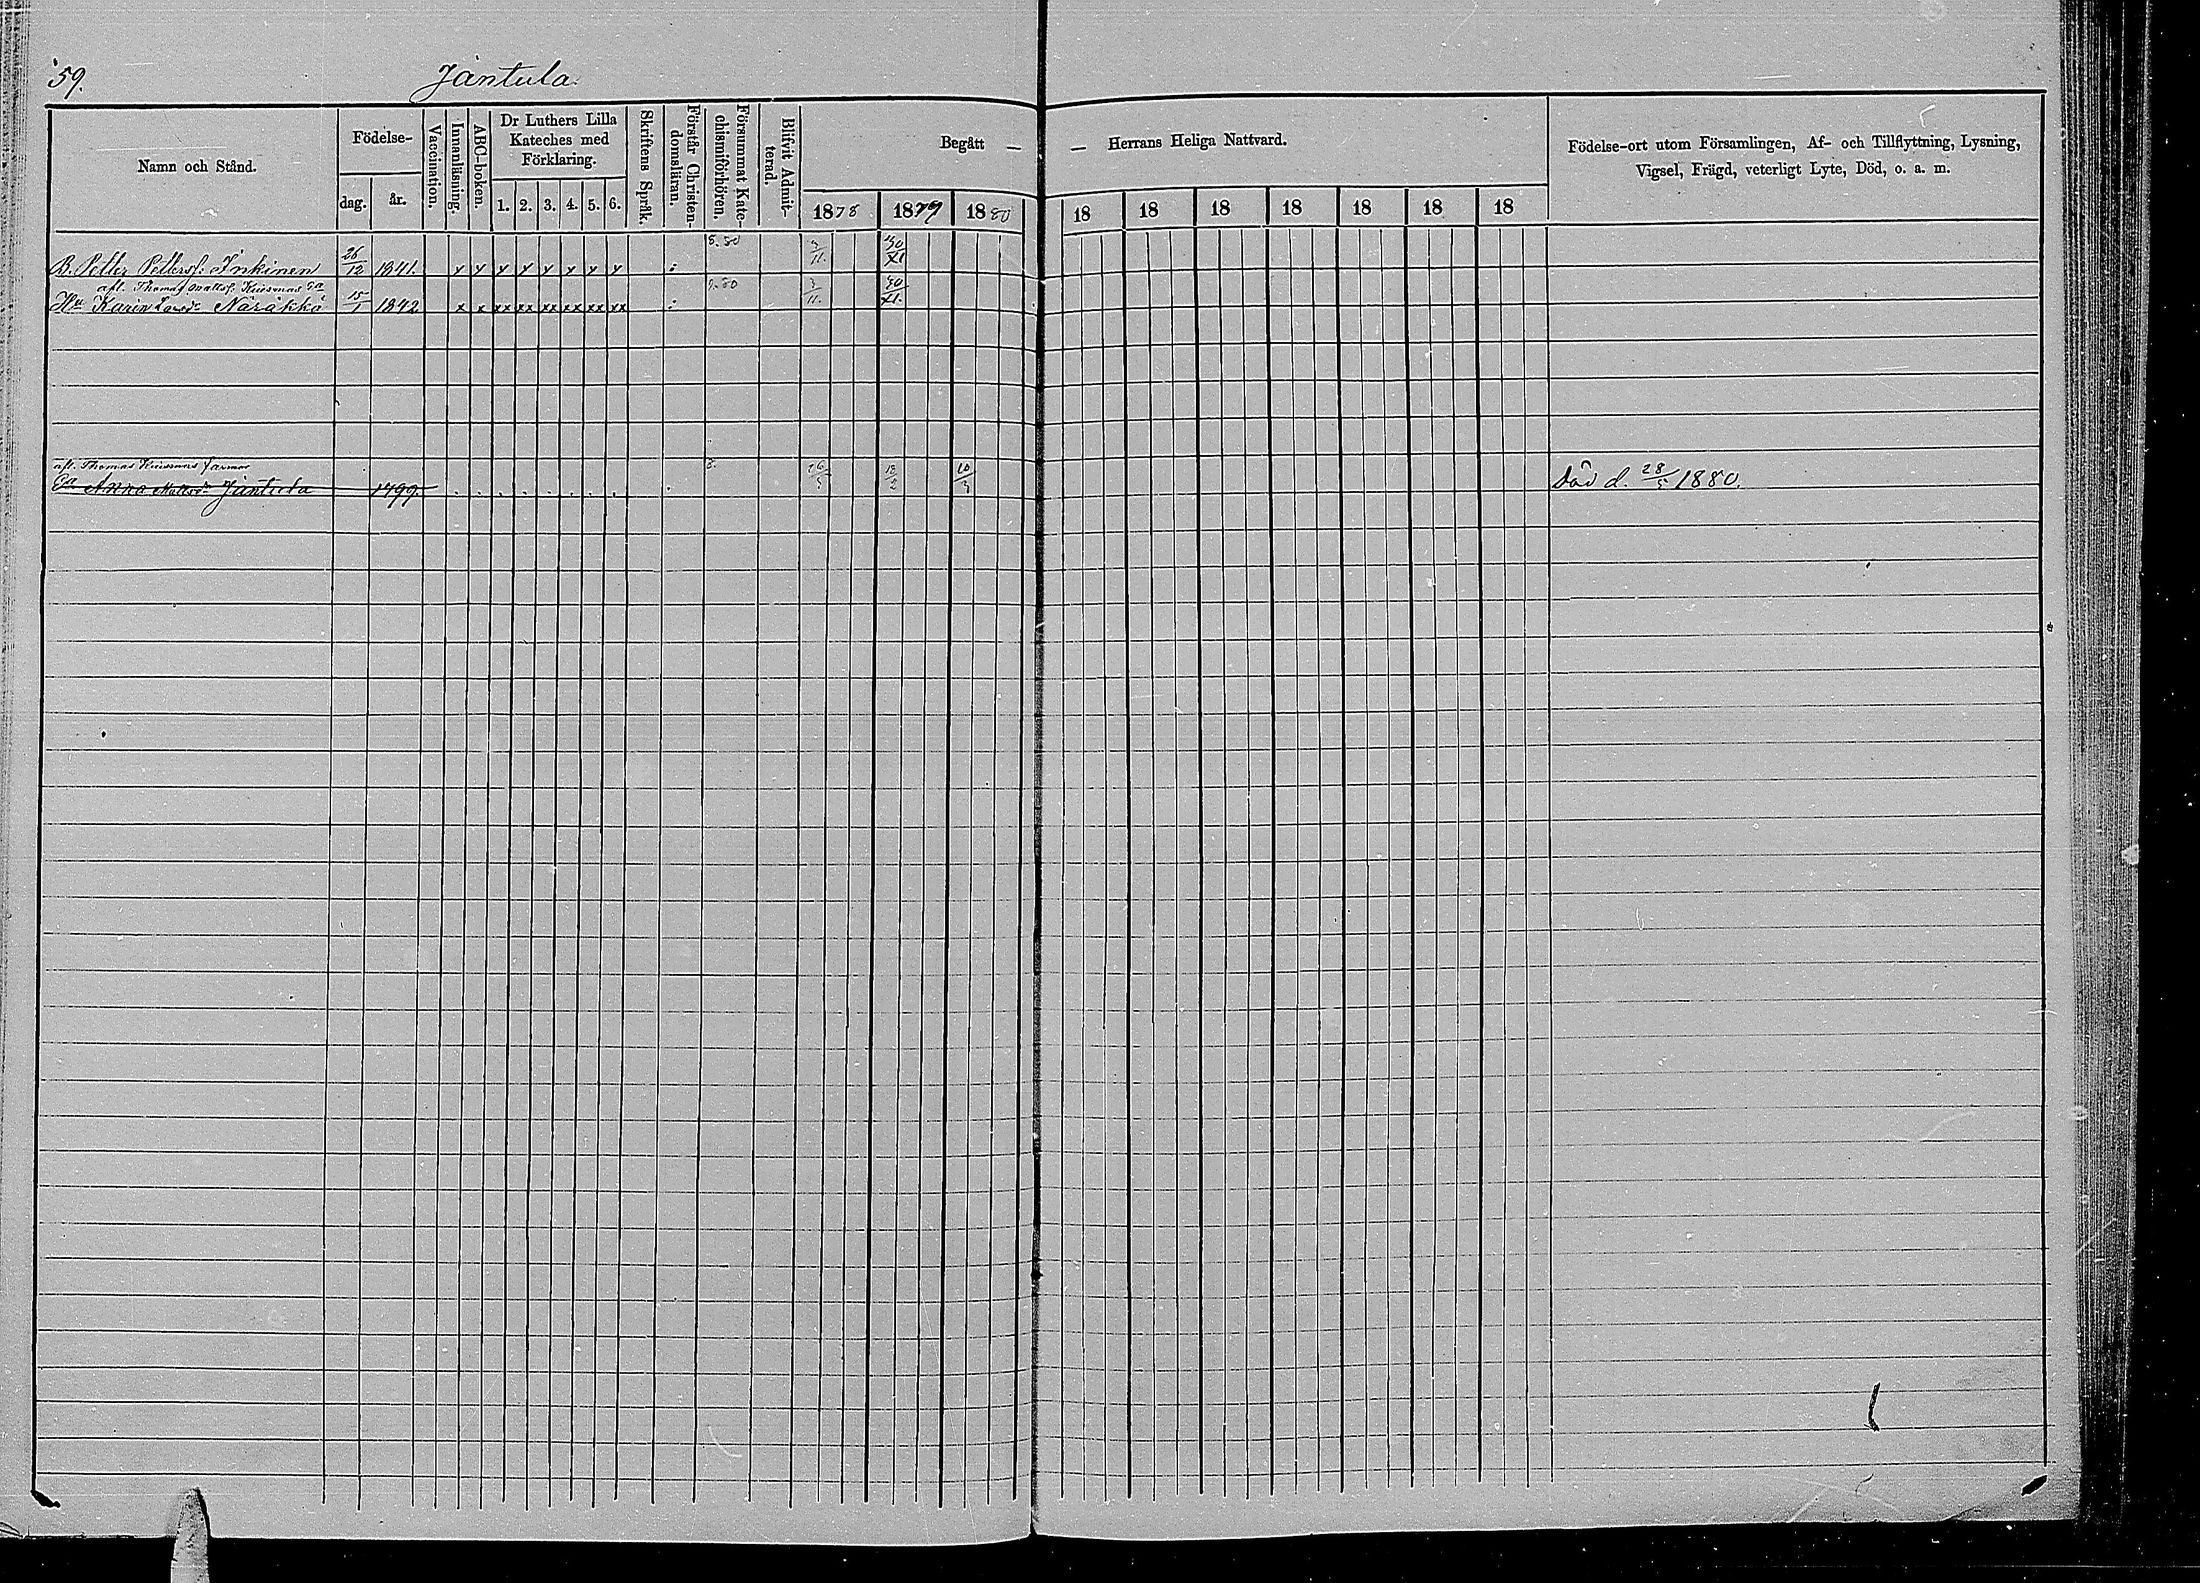 59. Jäntula.
Namn och Stånd.
Födelse-
dag. år.
Vaccination.
Innanläsning.
ABC-boken.
Dr Luthers Lilla
Kateches med
Förklaring.
1. 2. 3. 4. 5. 6.
Skriftens Språk.
Förstår Christen-
domsläran.
Försummat Kate-
chismiförhören.
Blifvit Admit-
terad.
Begått — — Herrans Heliga Nattvard.
1878 1879 1880 18 18 18 18 18 18 18
Födelse-ort utom Församlingen, Af- och Tillflyttning, Lysning,
Vigsel, Frägd, veterligt Lyte, Död, o. a. m.
B. Petter Pettersf: Inkinen 26/12 1841. 30/XI
afl. Thomas Mattsf: Kuismas Ea
Hu Karin Larsdr Näräkkä 15/1 1842 30/XI.
afl. Thomas Kuismas farmor
Ea Anna Mattsdr Jäntula 1799. 10/3 Död d. 28/5 1880.